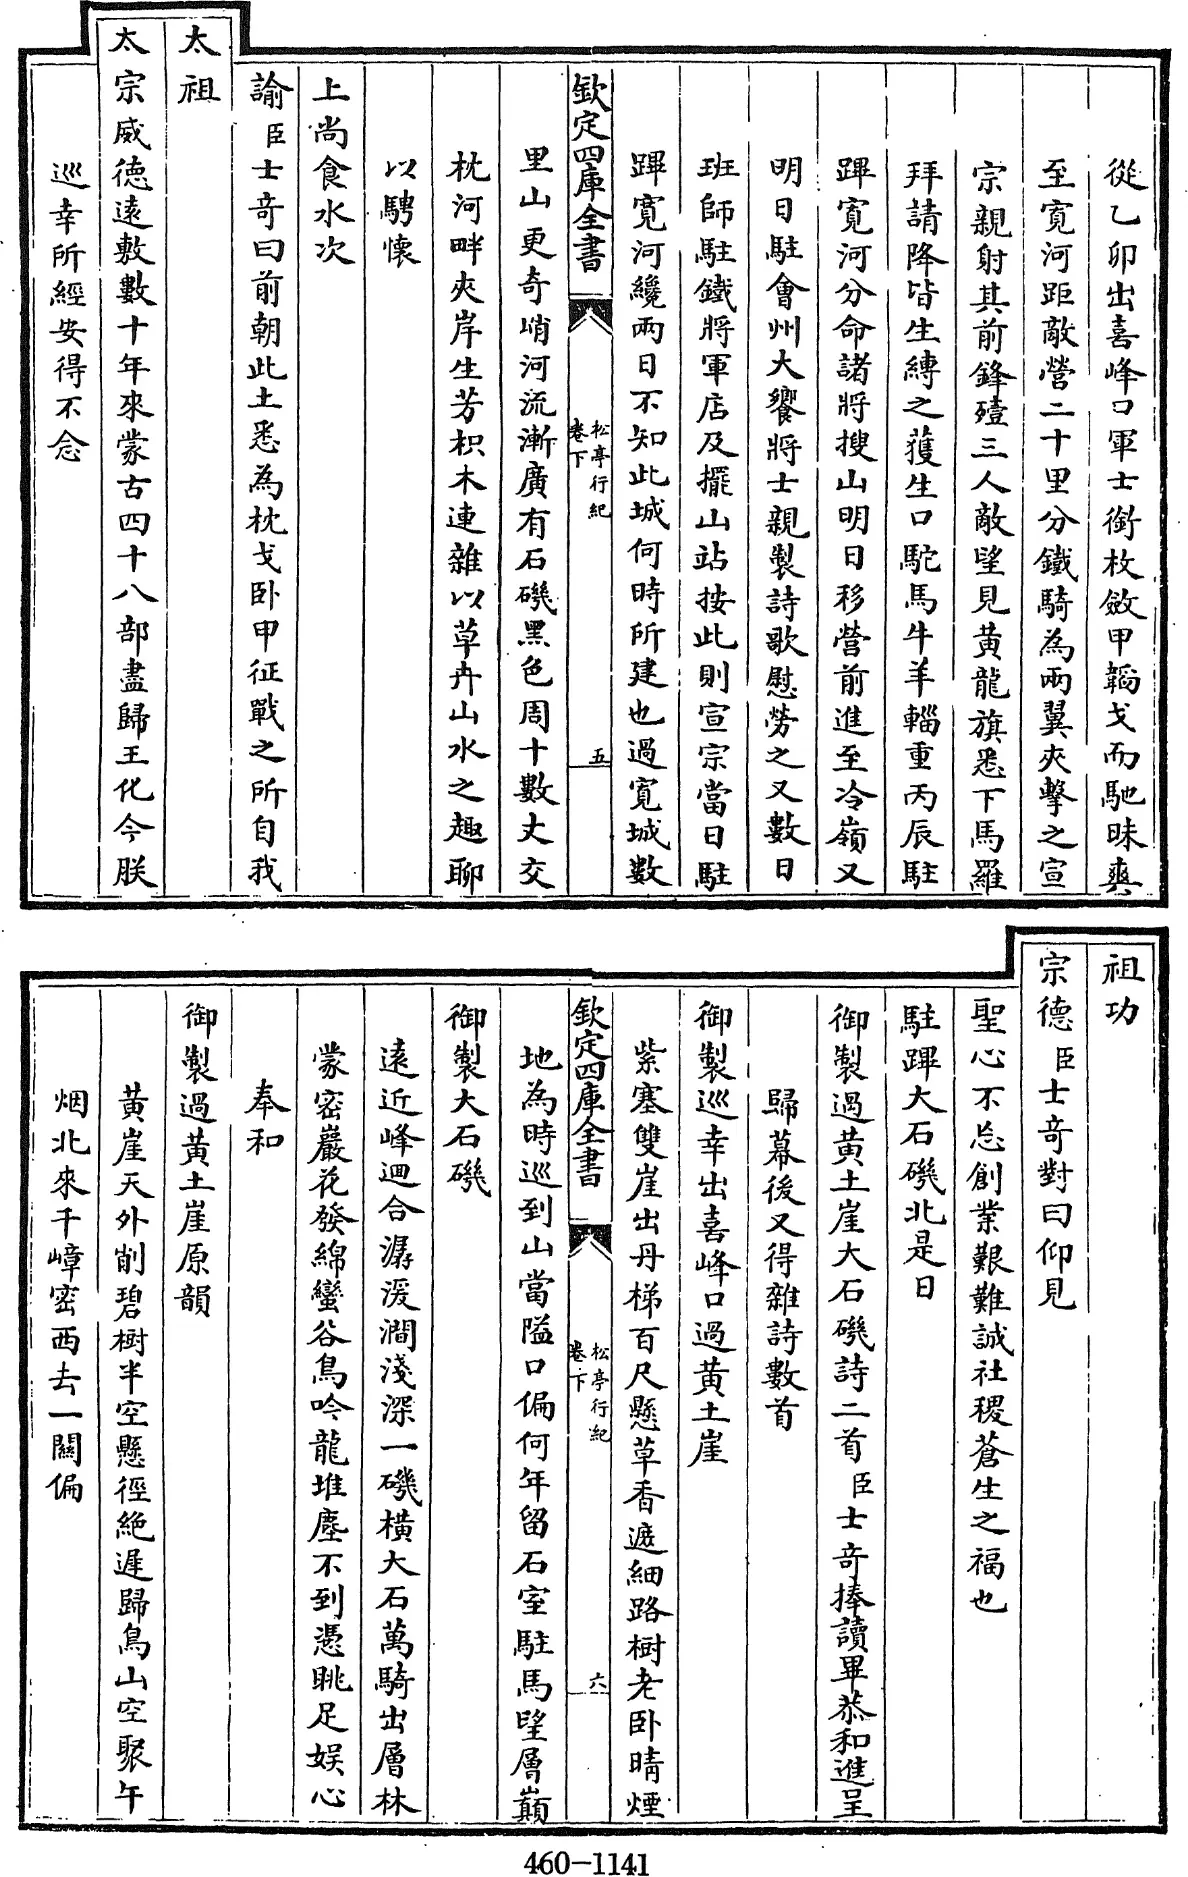 從乙卯出喜峰口軍士銜枚斂甲韜戈而馳昧爽
至寛河距敵營二十里分鐵騎為兩翼夾擊之宣
宗親射其前鋒殪三人敵望見黄龍旗悉下馬羅
拜請降皆生縛之獲生口駝馬牛羊輜重丙辰駐
蹕寛河分命諸將搜山明日移營前進至冷嶺又
明日駐會州大饗將士親製詩歌慰勞之又數日
班師駐鐵將軍店及擺山站按此則宣宗當日駐
蹕寛河纔兩日不知此城何時所建也過寛城數
欽定四庫全書
松亭行紀
卷下
五
里山更奇峭河流漸廣有石磯黑色周十數丈交
枕河畔夾岸生芳枳木連雜以草卉山水之趣聊
以騁懷
上尚食水次
諭臣士奇曰前朝此土悉為枕戈卧甲征戰之所自我
太祖
太宗威德遠敷數十年來蒙古四十八部盡歸王化今朕
巡幸所經安得不念
祖功
宗德臣士奇對曰仰見
聖心不忘創業艱難誠社稷蒼生之福也
駐蹕大石磯北是日
御製過黄土崖大石磯詩二首臣士奇捧讀畢恭和進呈
歸幕後又得雜詩數首
御製巡幸出喜峰口過黄土崖
紫塞雙崖出丹梯百尺懸草香遮細路樹老卧晴煙
欽定四庫全書
松亭行紀
卷下
六
地為時巡到山當隘口偏何年留石室駐馬望層巔
御製大石磯
遠近峰迴合潺湲澗淺深一磯横大石萬騎出層林
蒙密巖花發綿蠻谷鳥吟龍堆塵不到憑眺足娱心
奉和
御製過黄土崖原韻
黄崖天外削碧樹半空懸徑絶遲歸鳥山空聚午
烟北來千嶂密西去一關偏
460-1141